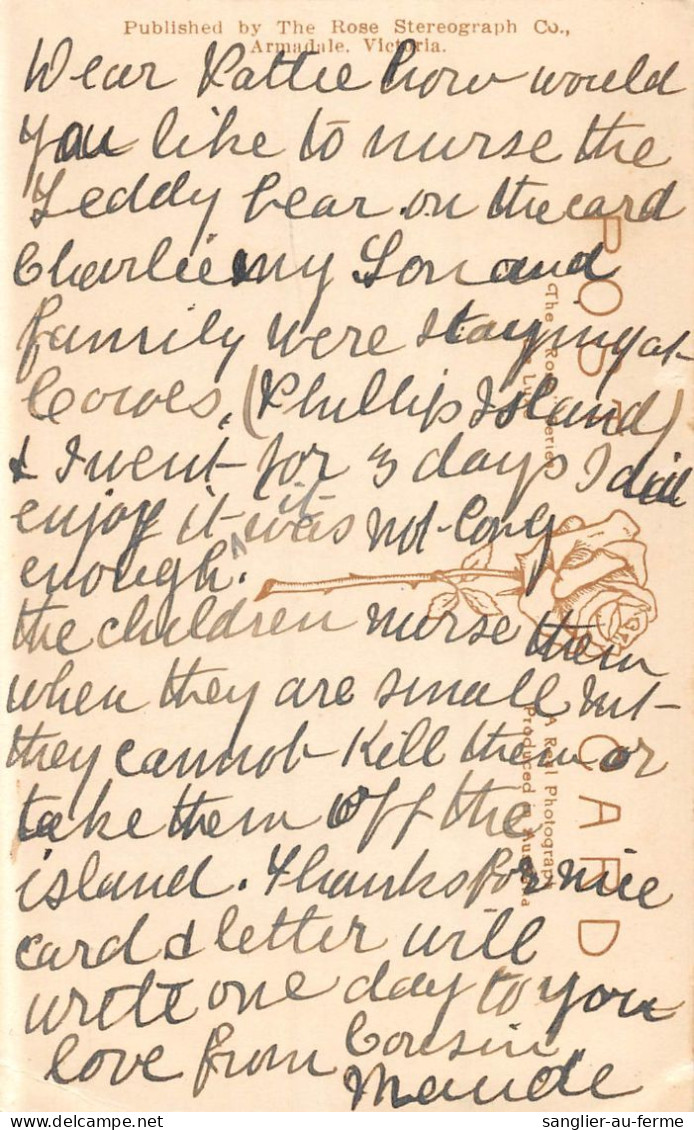 Published by The Rose Stereograph Co.,
Armadale, Victoria.
Dear Pattie how would
you like to nurse the
Teddy bear on the card
Charlie my Son and
family were staying at
Cowes, (Phillip Island)
& I went for 3 days I did
enjoy it it was not long
enough.
the children nurse them
when they are small but
they cannot kill them or
take them off the
island. Thanks for nice
card & letter will
write one day to you
love from Cousin
Maude
POST CARD
The Rose Series
A Real Photograph
Produced in Australia
sanglier-au-ferme